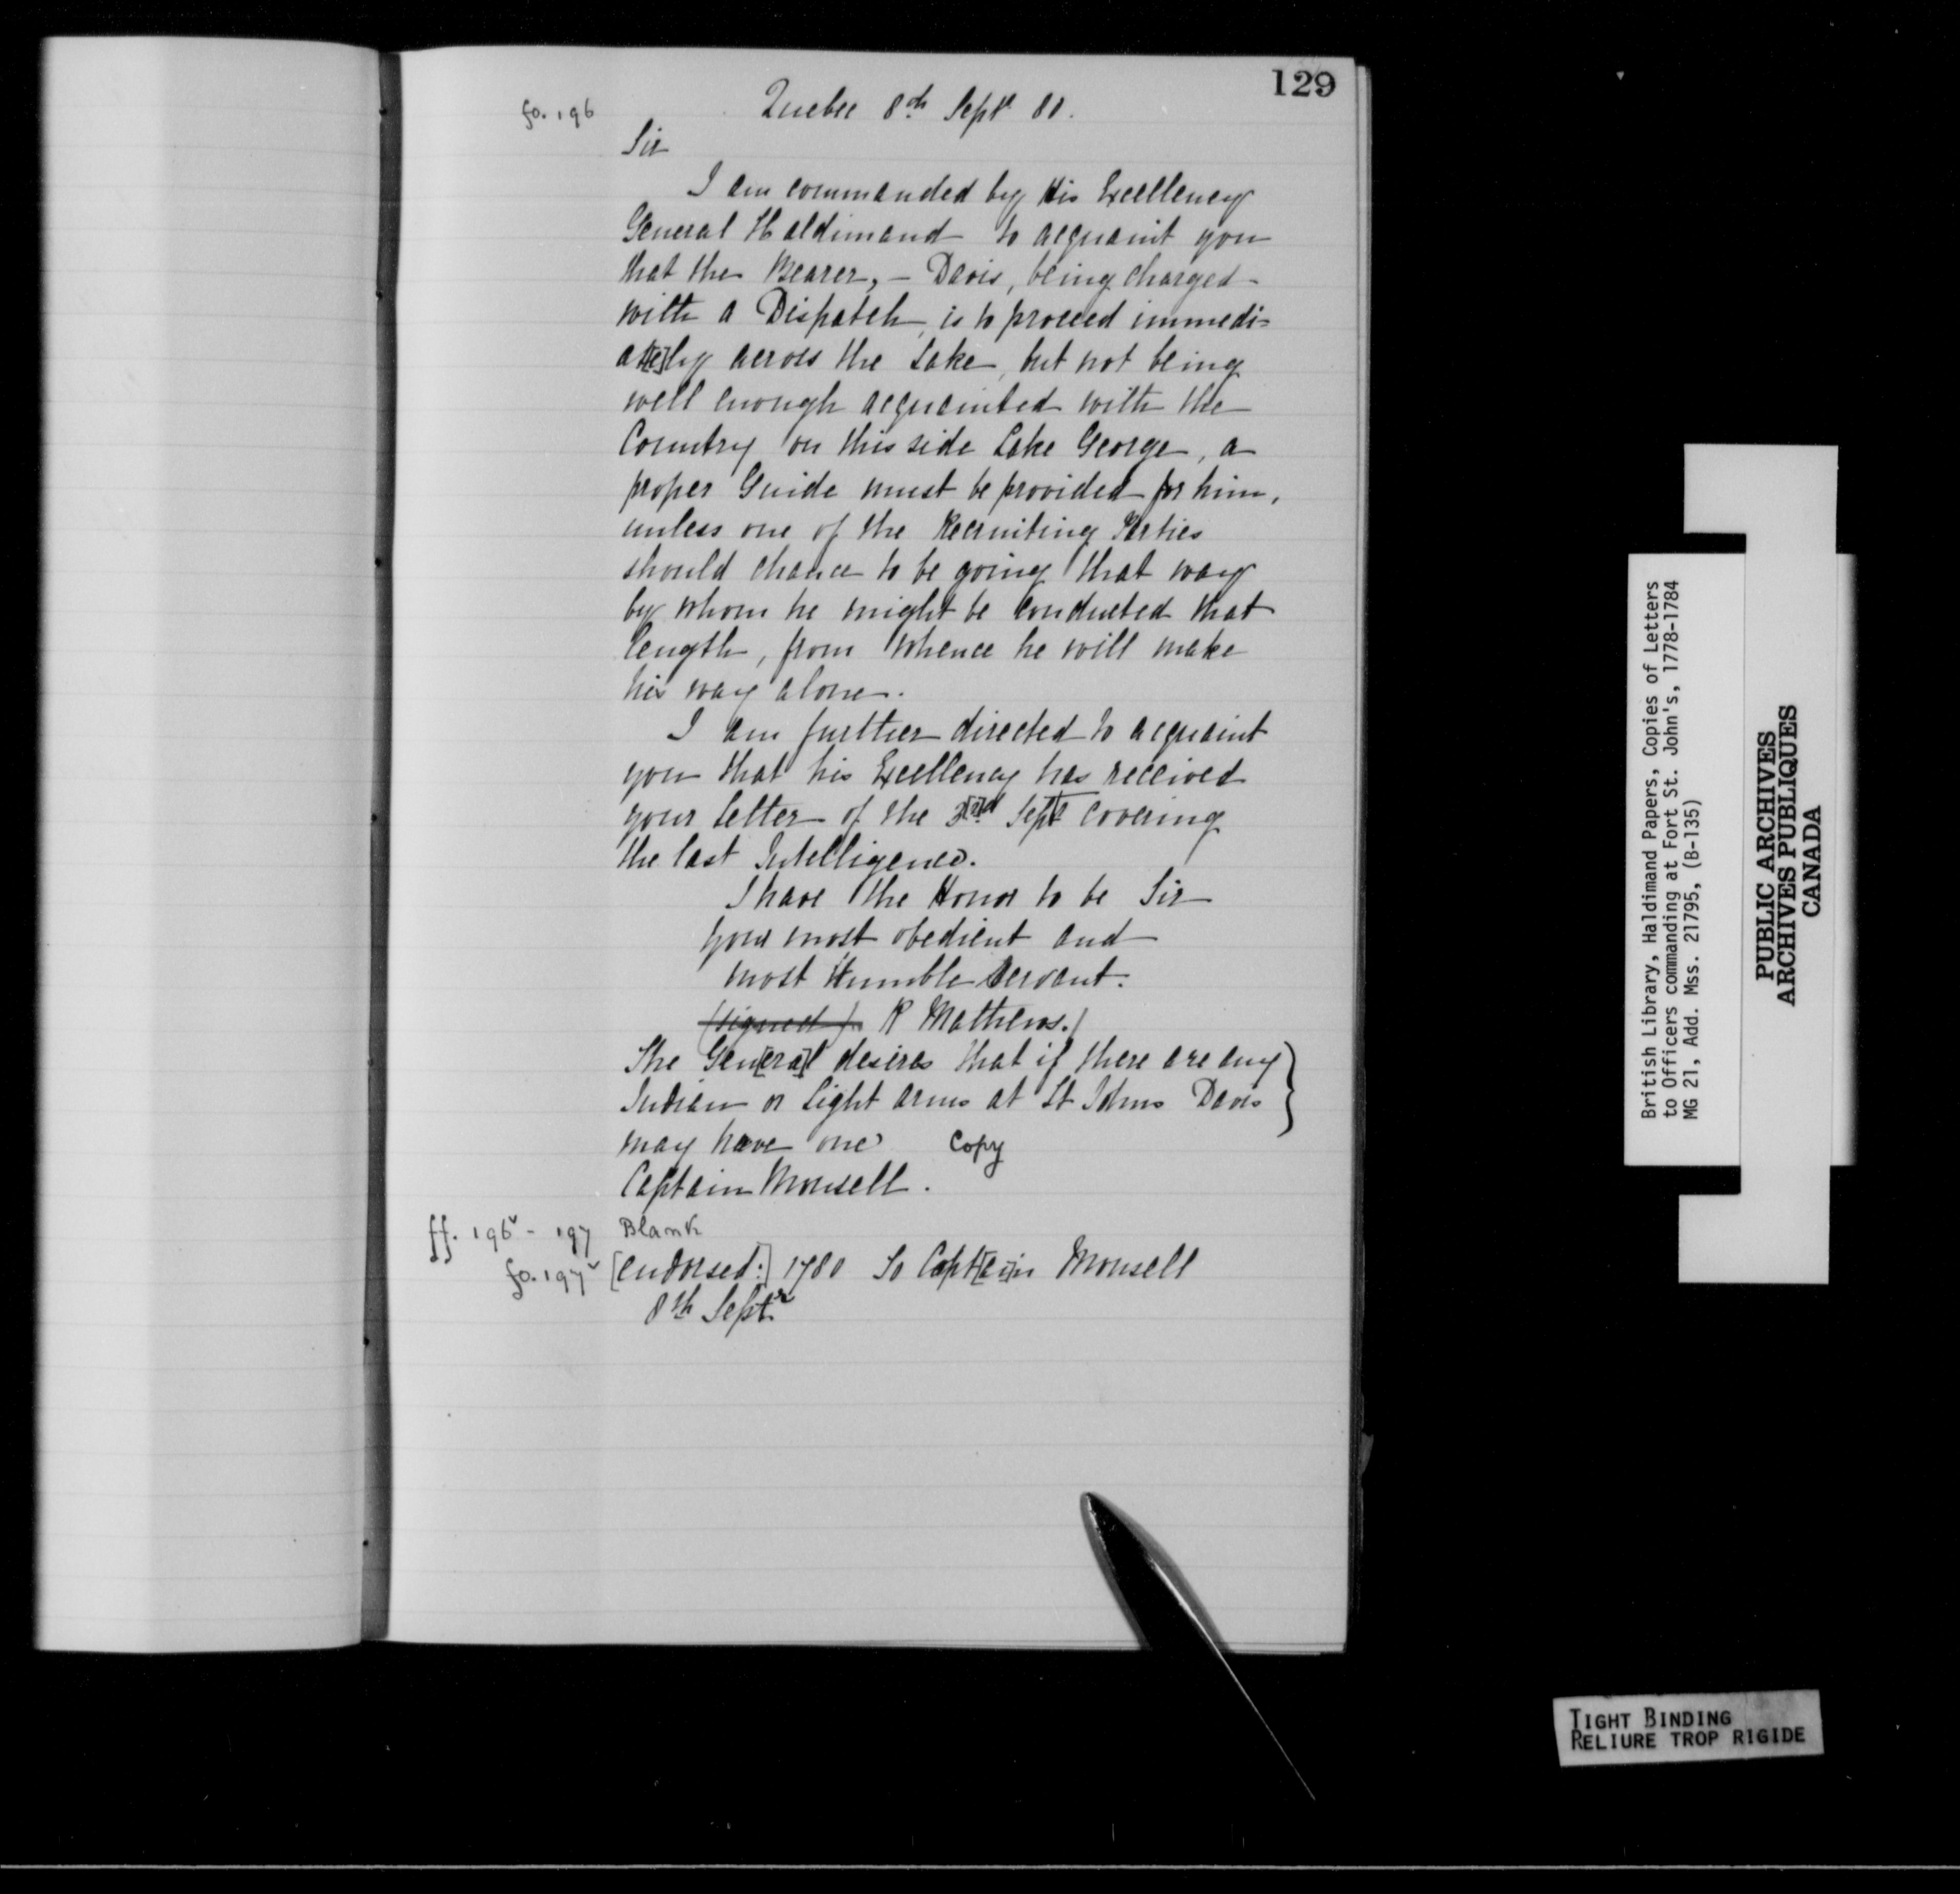 129
fo. 196
Quebec 8th Septr 80.
Sir
I am commanded by His Excellency
General Haldimand to acquaint you
that the Bearer, – Davis, being charged
with a Dispatch, is to proceed immedi=
at[e]ly across the Lake, but not being
well enough acquainted with the
Country on this side Lake George, a
proper Guide must be provided for him,
unless one of the Recruiting Parties
should chance to be going that way
by whom he might be conducted that
length, from whence he will make
his way alone.
I am further directed to acquaint
you that his Excellency has received
your letter of the 3[r]d Septr covering
the last Intelligence.
I have the Honor to be Sir
your most obedient and
most Humble Servant.
(signed) R Mathews.)
The Gen[era]l desires that if there are any
Indian or light arms at St Johns Davis
may have one
Copy
Captain Monsell.
ff. 196v - 197 Blank
fo. 197v [endorsed:] 1780 To Capt[ai]n Monsell
8th Septr
British Library, Haldimand Papers, Copies of Letters
to Officers commanding at Fort St. John's, 1778-1784
MG 21, Add. Mss. 21795, (B-135)
PUBLIC ARCHIVES
ARCHIVES PUBLIQUES
CANADA
TIGHT BINDING
RELIURE TROP RIGIDE